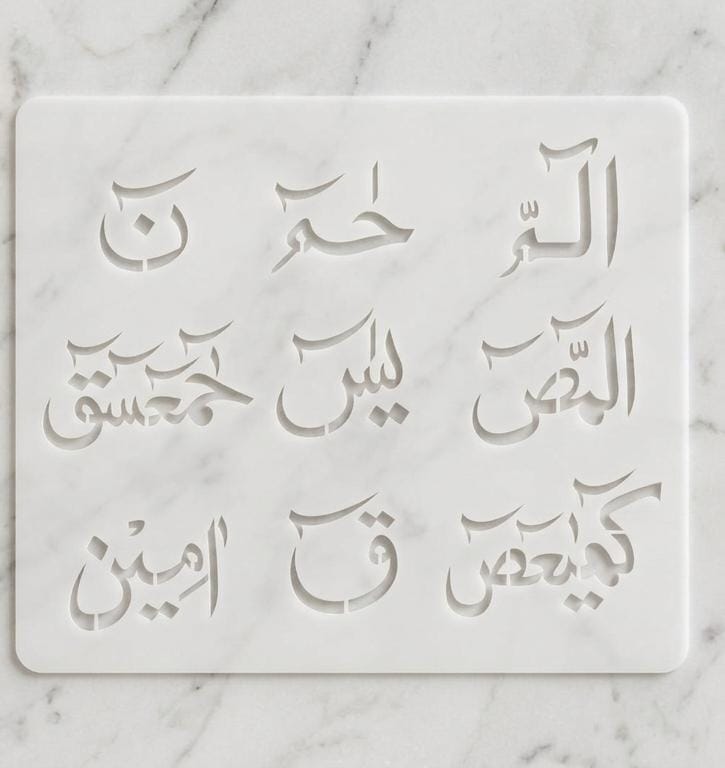 الٓمّٓ حٰمٓ نٓ
الٓمّٓصٓ يٰسٓ حٰمٓعٓسٓقٓ
كٓهٰيٰعٓصٓ قٓ اٰمِيْن